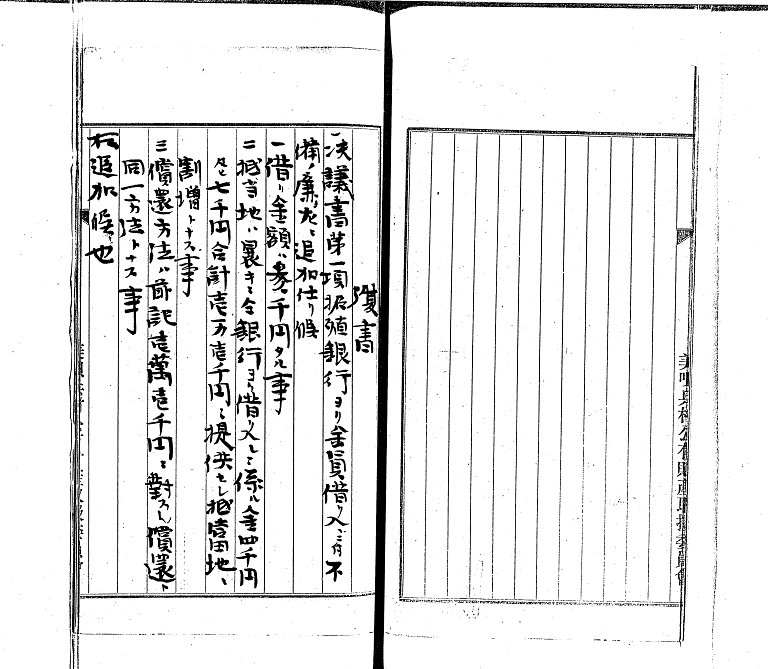 復書
一決議書第一項拓殖銀行ヨリ金員借リ入ニ付不
備ノ廉左ニ追加仕リ候
一借リ金額ハ参千円タル事
二抵当地ハ裏キニ仝銀行ヨリ借リ入レニ係ル金四千円
七千円合計壱万壱千円ニ提供セシ抵当地ニ
割増トナス事
三償還方法ハ前記壱萬壱千円ニ対スル償還ト
同一方法トナス事
右追加候也